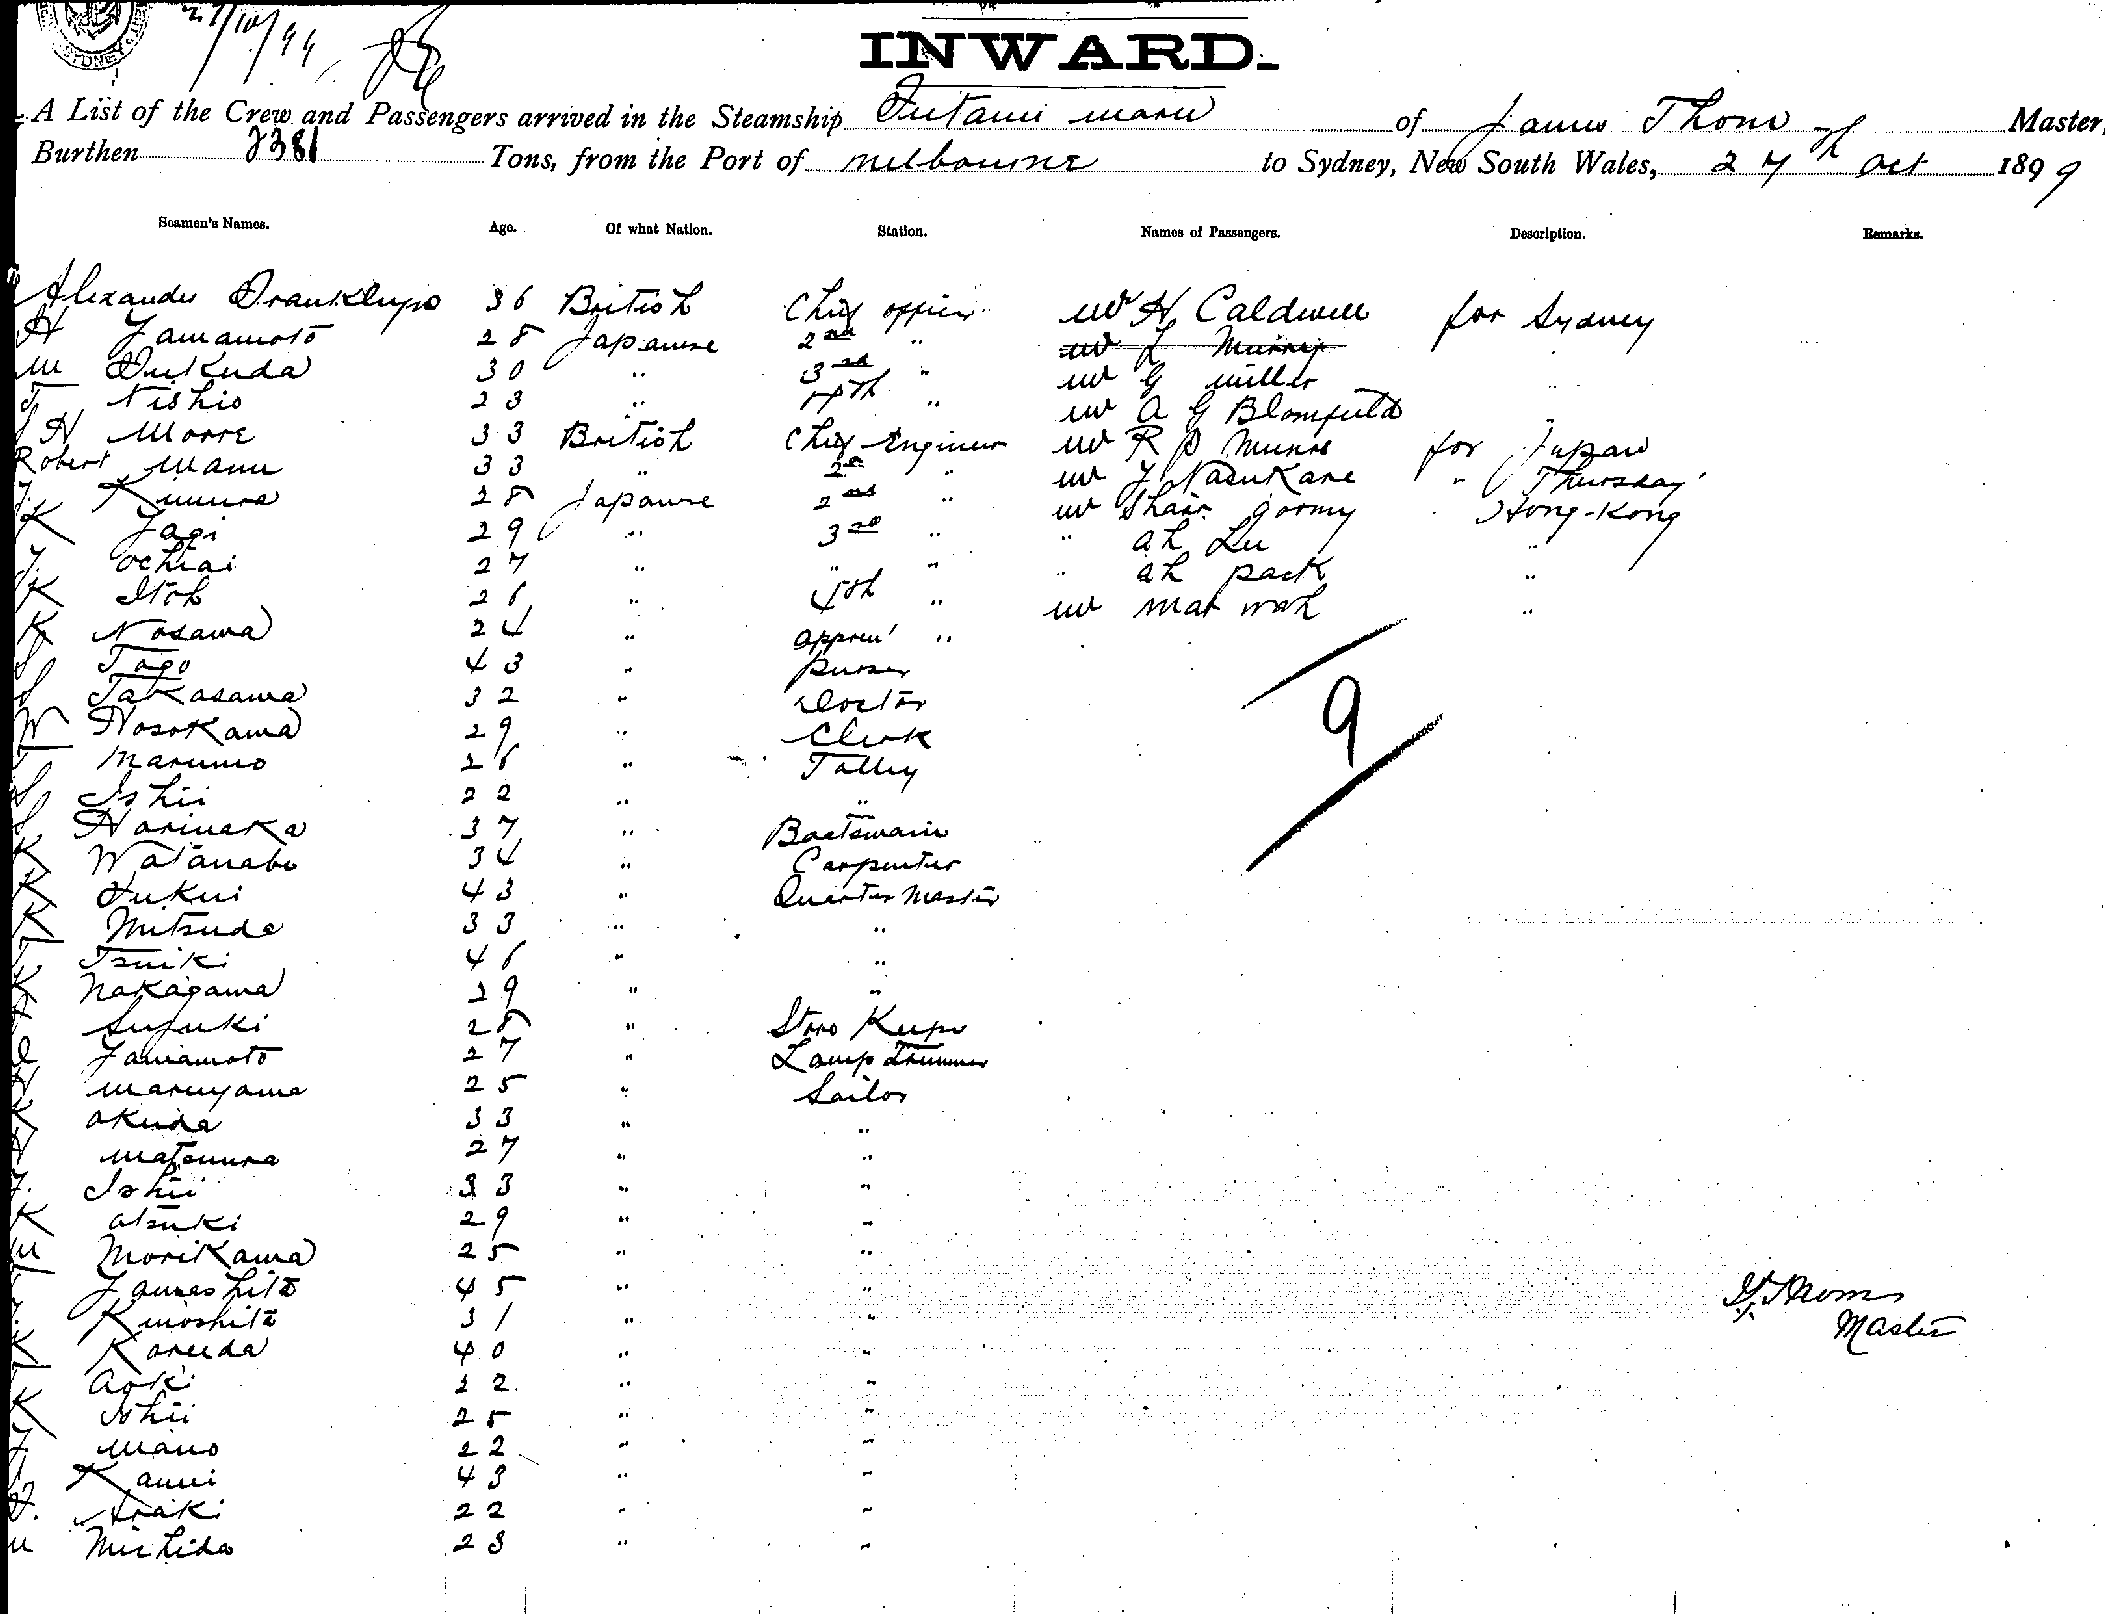 SYDNEY
27/10/99
INWARD.
A List of the Crew and Passengers arrived in the Steamship Futami maru of James Thom Master,
Burthen 2381 Tons, from the Port of Melbourne to Sydney, New South Wales, 27th Oct 1899
Seamen's Names. Age. Of what Nation. Station. Names of Passengers. Description. Remarks.
Alexander 36 British Chief officer Mr H Caldwell for Sydney
H Yamamoto 28 Japanese 2nd " Mr L Murray
M Fukuda 30 " 3rd " Mr G Miller
T Nishio 23 " 4th " Mr A G Blomfield
J H Moore 33 British Chief Engineer Mr R D Munro for Japan
Robert Mann 33 " 2nd " Mr Y Nasukane " Thursday
J. Kimura 28 Japanese 2nd " Mr Shair goomy " Hong-Kong
K Yagi 29 " 3rd " " ah Lu
J. Ochiai 27 " " " " ah pack "
K Itoh 26 " 4th " Mr mar wah "
K Nosawa 24 " appren' "
S Togo 43 " purser
S Takasawa 32 " Doctor
M Hosokawa 29 " Clerk
T Marumo 26 " Talley
S Ishii 22 " "
S Horinaka 37 " Boatswain
K Watanabe 34 " Carpenter
K Fukui 43 " Quarter Master
K Mitsuda 33 " "
T Tsuiki 46 " "
K Nakagawa 29 " "
Suzuki 28 " Store Keeper
Yamamoto 27 " Lamp Trimmer
Maruyama 25 " Sailor
K Okuda 33 " "
Matsumura 27 " "
J. Ishii 33 " "
K Otsuki 29 " "
M Morikawa 25 " "
Yamashita 45 " "
J. Kinoshita 31 " "
K Koreeda 40 " "
Aoki 22 " "
K Ishii 25 " "
J Mano 22 " "
Kamei 43 " "
H. Araki 22 " "
M Nishida 23 " "
9
Jas Thom
Master